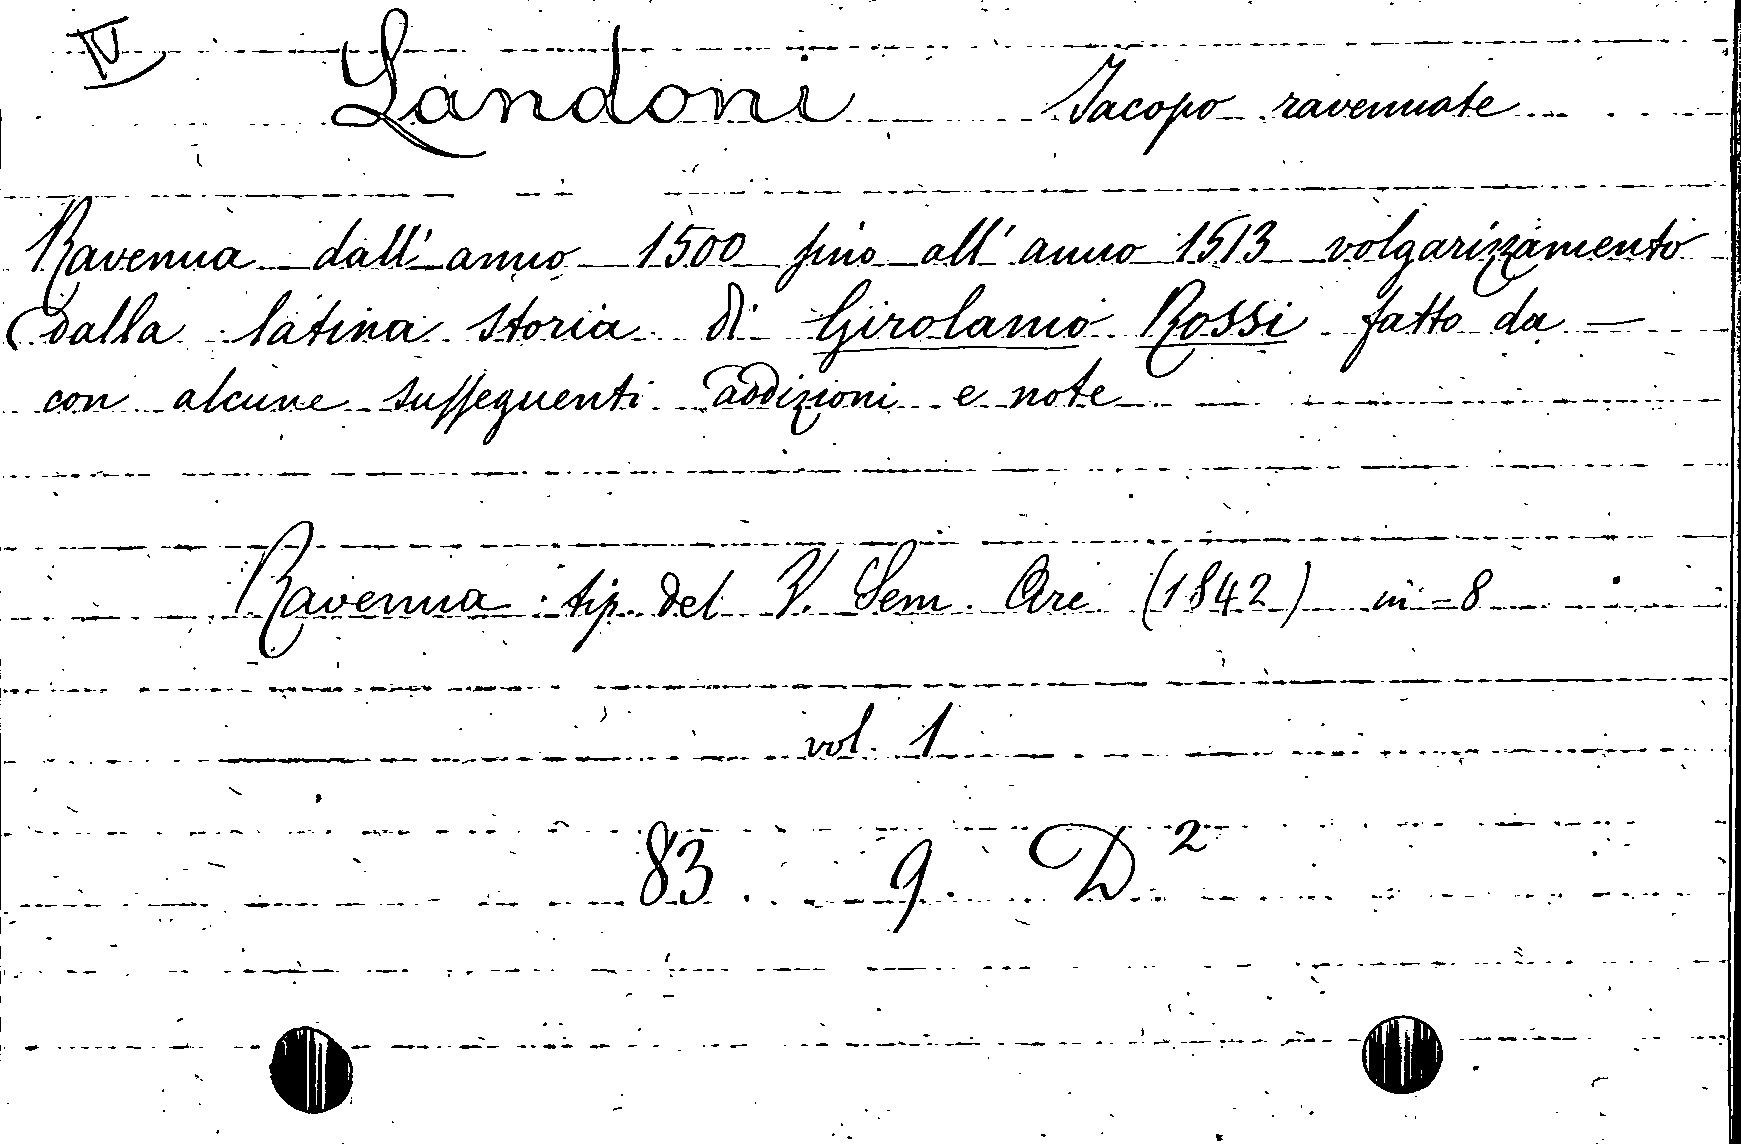 IV
Landoni Jacopo ravennate
Ravenna dall'anno 1500 fino all'anno 1513 volgarizzamento
dalla latina storia di Girolamo Rossi fatto da —
con alcune susseguenti addizioni e note
Ravenna: tip. del V. Sem. Arc. (1842) in-8
vol. 1
83. 9. D²